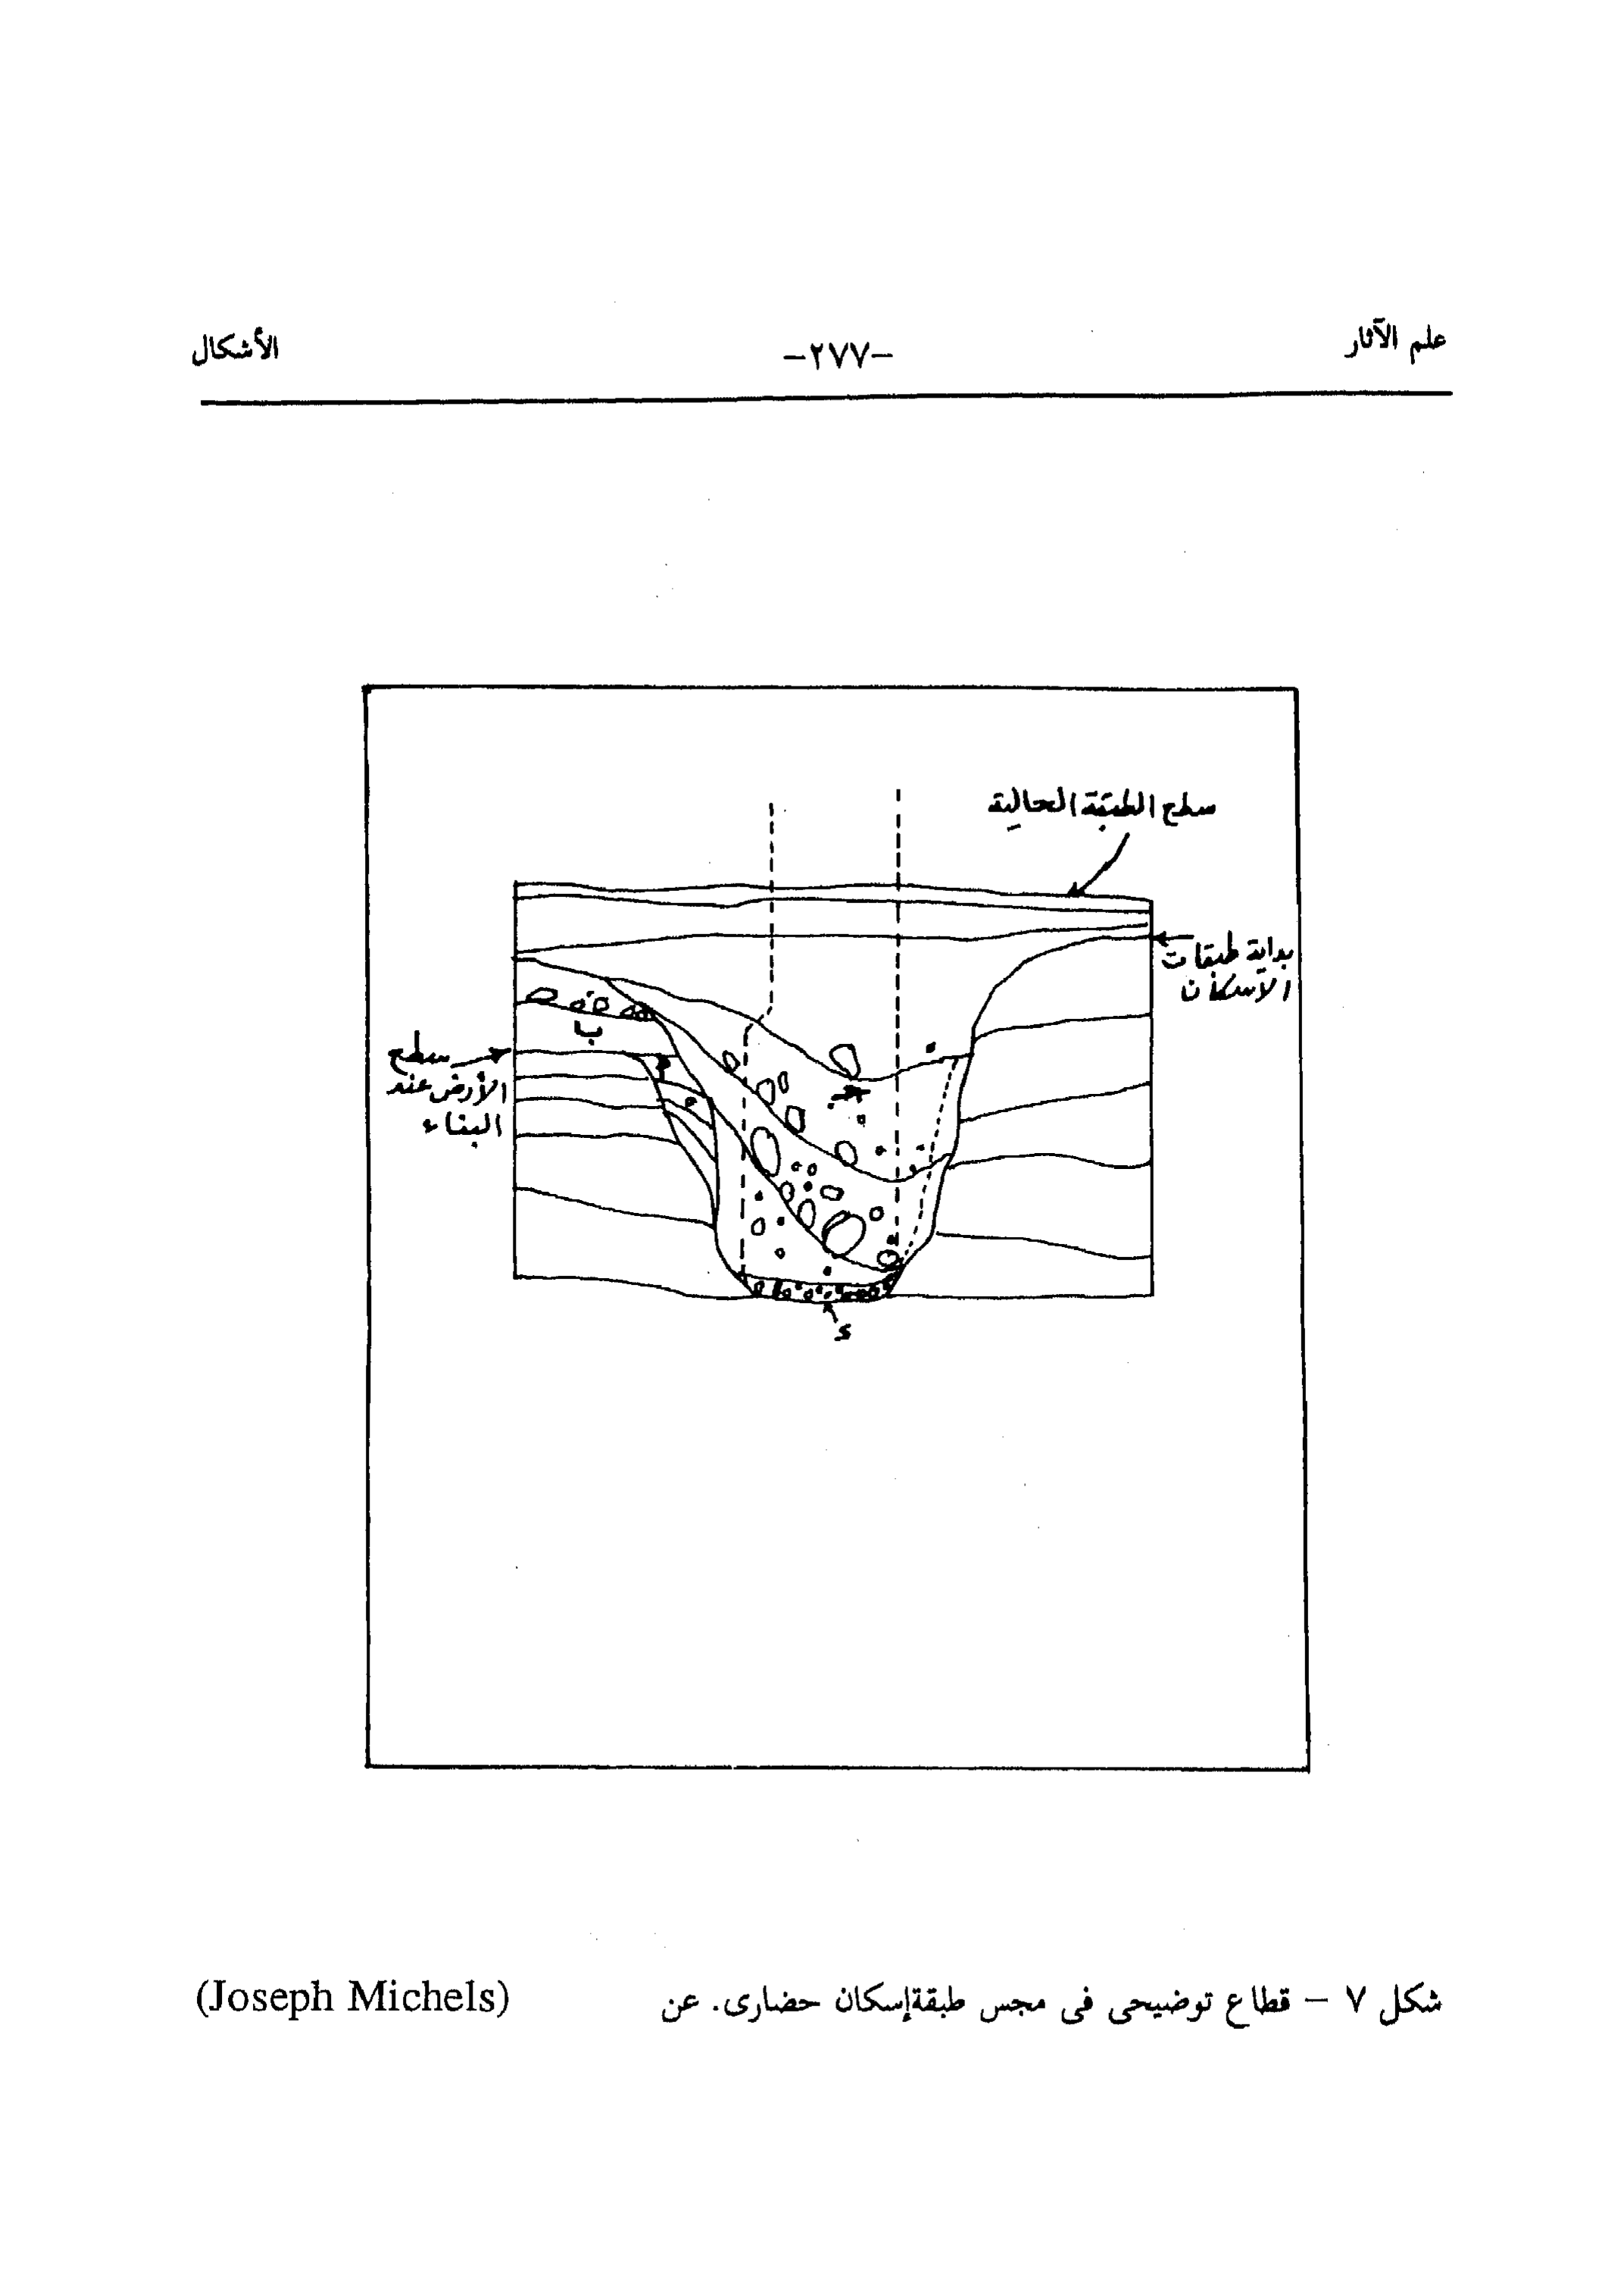 علم الآثار -٢٧٧- الأشكال
سطح الطبقة الحالية
بداية طبقات
الاسكان
ب
سطح
الأرض عند
البناء
أ
م
ج
د
شكل ٧ – قطاع توضيحى فى مجس طبقةإسكان حضارى. عن (Joseph Michels)